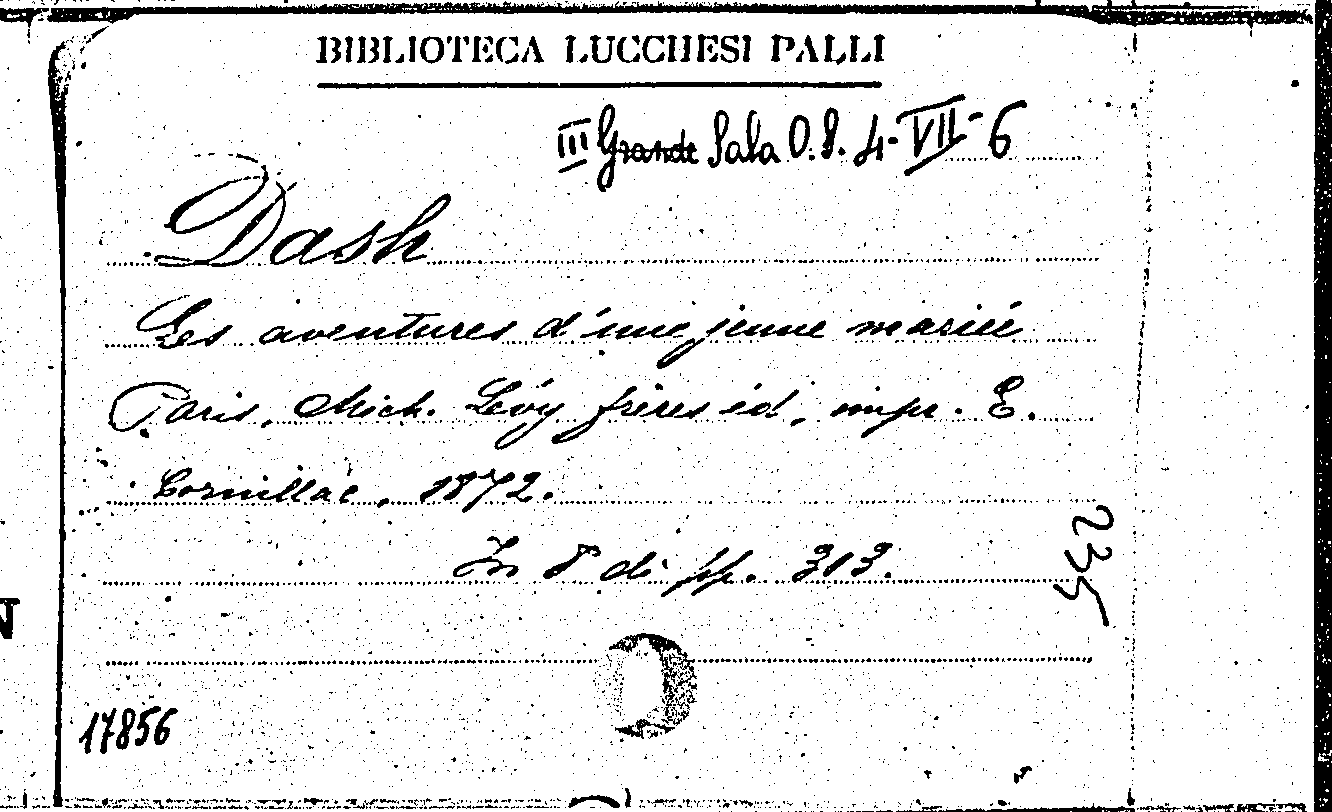 BIBLIOTECA LUCCHESI PALLI
III Grande Sala O.S. 4-VII-6
Dash
Les aventures d'une jeune mariée
Paris, Mich. Lévy frères éd, impr. E.
Cornillac, 1872.
In 8° di pp. 313.
235
17856
N